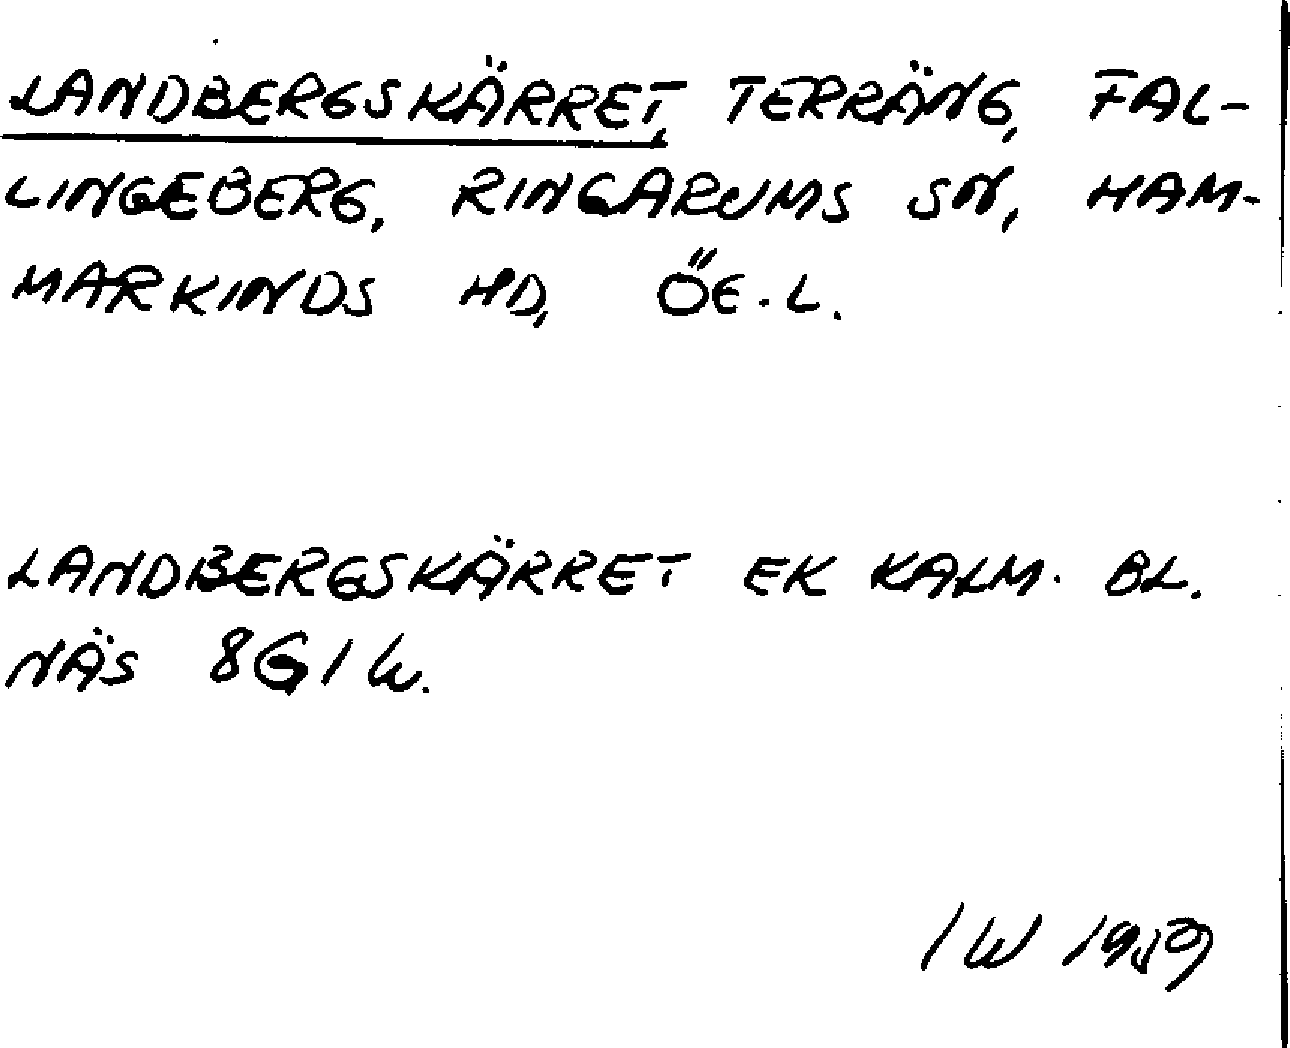 LANDBERGSKÄRRET, TERRÄNG, FAL-
LINGEBERG, RINGARUMS SN, HAM-
MARKINDS HD, ÖE.L.
LANDBERGSKÄRRET EK KALM. BL.
NÄS 8G1
IW 1959